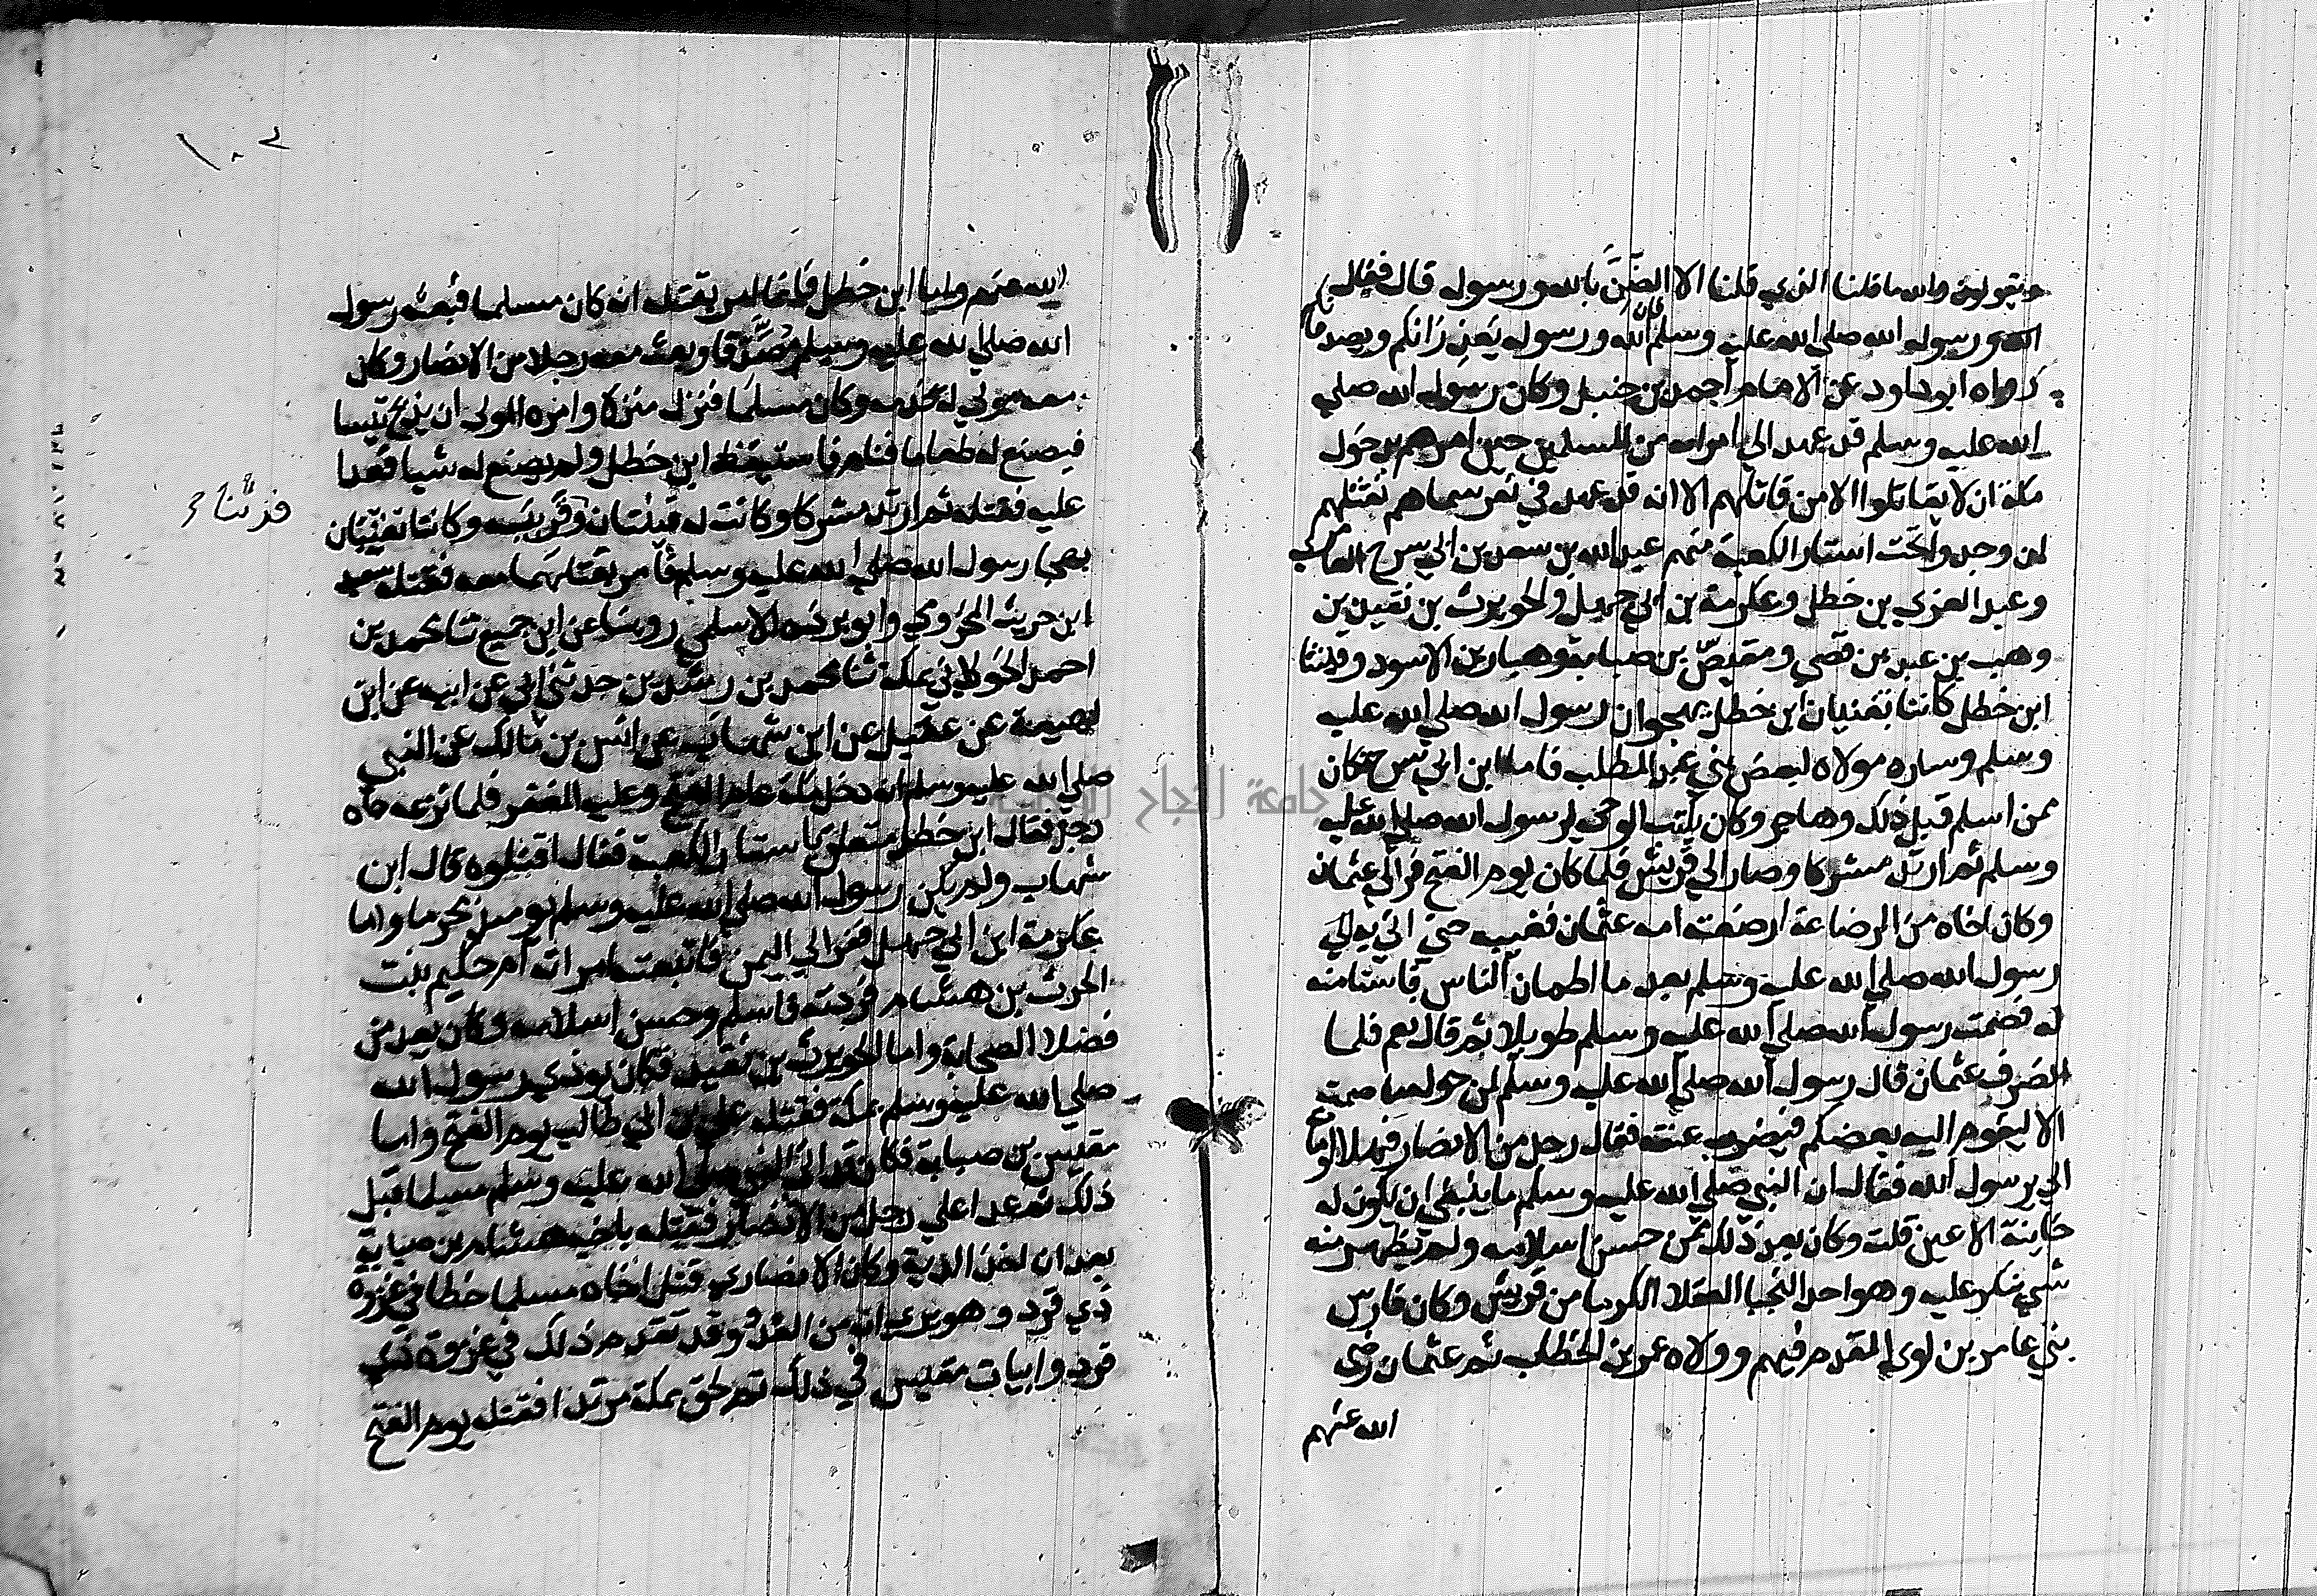 ويقولون والله ما قلنا الذي قلنا الا الضن بالله ورسوله قال فقال
الله ورسوله الله صلي الله عليه وسلم فان الله ورسوله يعذرانكم ويصدقانكم
رواه ابو داود عن الامام احمد بن حنبل وكان رسول الله صلي
الله عليه وسلم قد عهد الي امرايه من المسلمين حين امرهم بدخول
مكة ان لا يقاتلوا الا من قاتلهم الا انه قد عهد في نفر سماهم بقتلهم
ان وجدوا تحت استار الكعبة منهم عبد الله بن سعد بن ابي سرح العامري
وعبد العزي بن خطل وعكرمة بن ابي جهل والحويرث بن نقيد بن
وهب بن عبد بن قصي ومقيس بن صبابة وهبار بن الاسود وقينتا
ابن خطل كانتا تغنيان ابن خطل بهجوان رسول الله صلي الله عليه
وسلم وساره مولاه لبعض بني عبد المطلب فاما ابن ابي سرح فكان
ممن اسلم قبل ذلك وهاجر وكان يكتب الوحي لرسول الله صلي الله عليه
وسلم ثم ارتد مشركا وصار الي قريش فلما كان يوم الفتح فر الي عثمان
وكان اخاه من الرضاعة ارضعت امه عثمان فغيبه حتي اتي به الي
رسول الله صلي الله عليه وسلم بعد ما اطمان الناس فاستامنه
له فصمت رسول الله صلي الله عليه وسلم طويلا ثم قال نعم فلما
انصرف عثمان قال رسول الله صلي الله عليه وسلم لمن حوله ما صمت
الا ليقوم اليه بعضكم فيضرب عنقه فقال رجل من الانصار فهلا اومات
الي يرسول الله فقال ان النبي صلي الله عليه وسلم ما ينبغي ان يكون له
خاينة الاعين قلت وكان بعد ذلك ممن حسن اسلامه ولم يظهر منه
شي ينكر عليه وهو احد النجبا العقلا الكرما من قريش وكان فارس
بني عامر بن لوي المقدم فيهم وولاه عمر بن الخطاب ثم عثمان رضي
الله عنهم
١٠٢
الله عنهم واما ابن خطل فانما امر بقتله انه كان مسلما فبعثه رسول
الله صلي الله عليه وسلم مصدقا وبعث معه رجلا من الانصار وكان
معه مولي له يخدمه وكان مسلما فنزل منزلا وامره المولي ان يذبح تيسا
فيصنع له طعاما فنام فاستيقظ ابن خطل ولم يصنع له شيا فعدا
عليه فقتله ثم ارتد مشركا وكانت له قينتان وقريبه وكانتا تغنيان
فرتنا
بهجا رسول الله صلي الله عليه وسلم فامر بقتلهما معه فقتله سعيد
ابن حريث المخزومي وابو برزه الاسلمي روينا عن ابن جميع ثنا محمد بن
احمد الخولاني بمكة ثنا محمد بن رشدين حدثني ابي عن ابيه عن ابن
لهيعة عن عقيل عن ابن شهاب عن انس بن مالك عن النبي
صلي الله عليه وسلم انه دخل مكة عام الفتح وعليه المغفر فلما نزعه جاه
رجل فقال ابن خطل متعلق باستار الكعبة فقال اقتلوه قال ابن
شهاب ولم يكن رسول الله صلي الله عليه وسلم يوميذ محرما واما
عكرمة ابن ابي جهل ففر الي اليمن فاتبعته امراته ام حكيم بنت
الحرث بن هشام فردته فاسلم وحسن اسلامه وكان يعد من
فضلا الصحابة واما الحويرث بن نقيد فكان يوذي رسول الله
صلي الله عليه وسلم بمكة فقتله علي بن ابي طالب يوم الفتح واما
مقيس بن صبابة فكان قد اتي النبي صلي الله عليه وسلم مسلما قبل
ذلك ثم عدا علي رجل من الانصار فقتله باخيه هشام بن صبابة
بعد ان اخذ الدية وكان الانصاري قتل اخاه مسلما خطا في غزوه
ذي قرد وهو يري انه من العدو وقد تقدم ذلك في غزوة ذي
قرد وابيات مقيس في ذلك ثم لحق بمكة مرتدا فقتله يوم الفتح
جامعة النجاح الوطنية